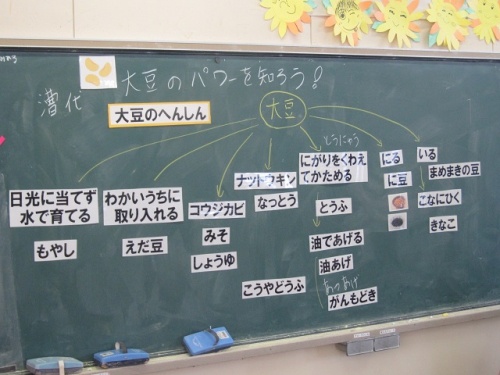 大豆のパワーを知ろう?
大豆のへんしん
大豆
日光に当てず
水で育てる
もやし
わかいうちに
取り入れる
えだ豆
コウジカビ
みそ
しょうゆ
ナットウキン
なっとう
こうやどうふ
とうにゅう
にがりをくわえ
てかためる
とうふ
油であげる
油あげ
あつあげ
がんもどき
にる
に豆
いる
まめまきの豆
こなにひく
きなこ